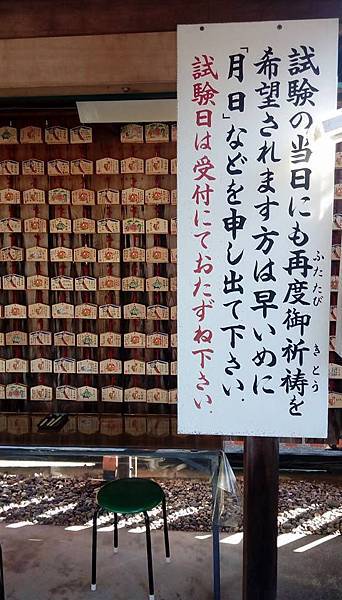 試験の当日にも再度御祈祷を
ふたたび きとう
希望されます方は早いめに
「月日」などを申し出て下さい.
試験日は受付にておたずね下さい.